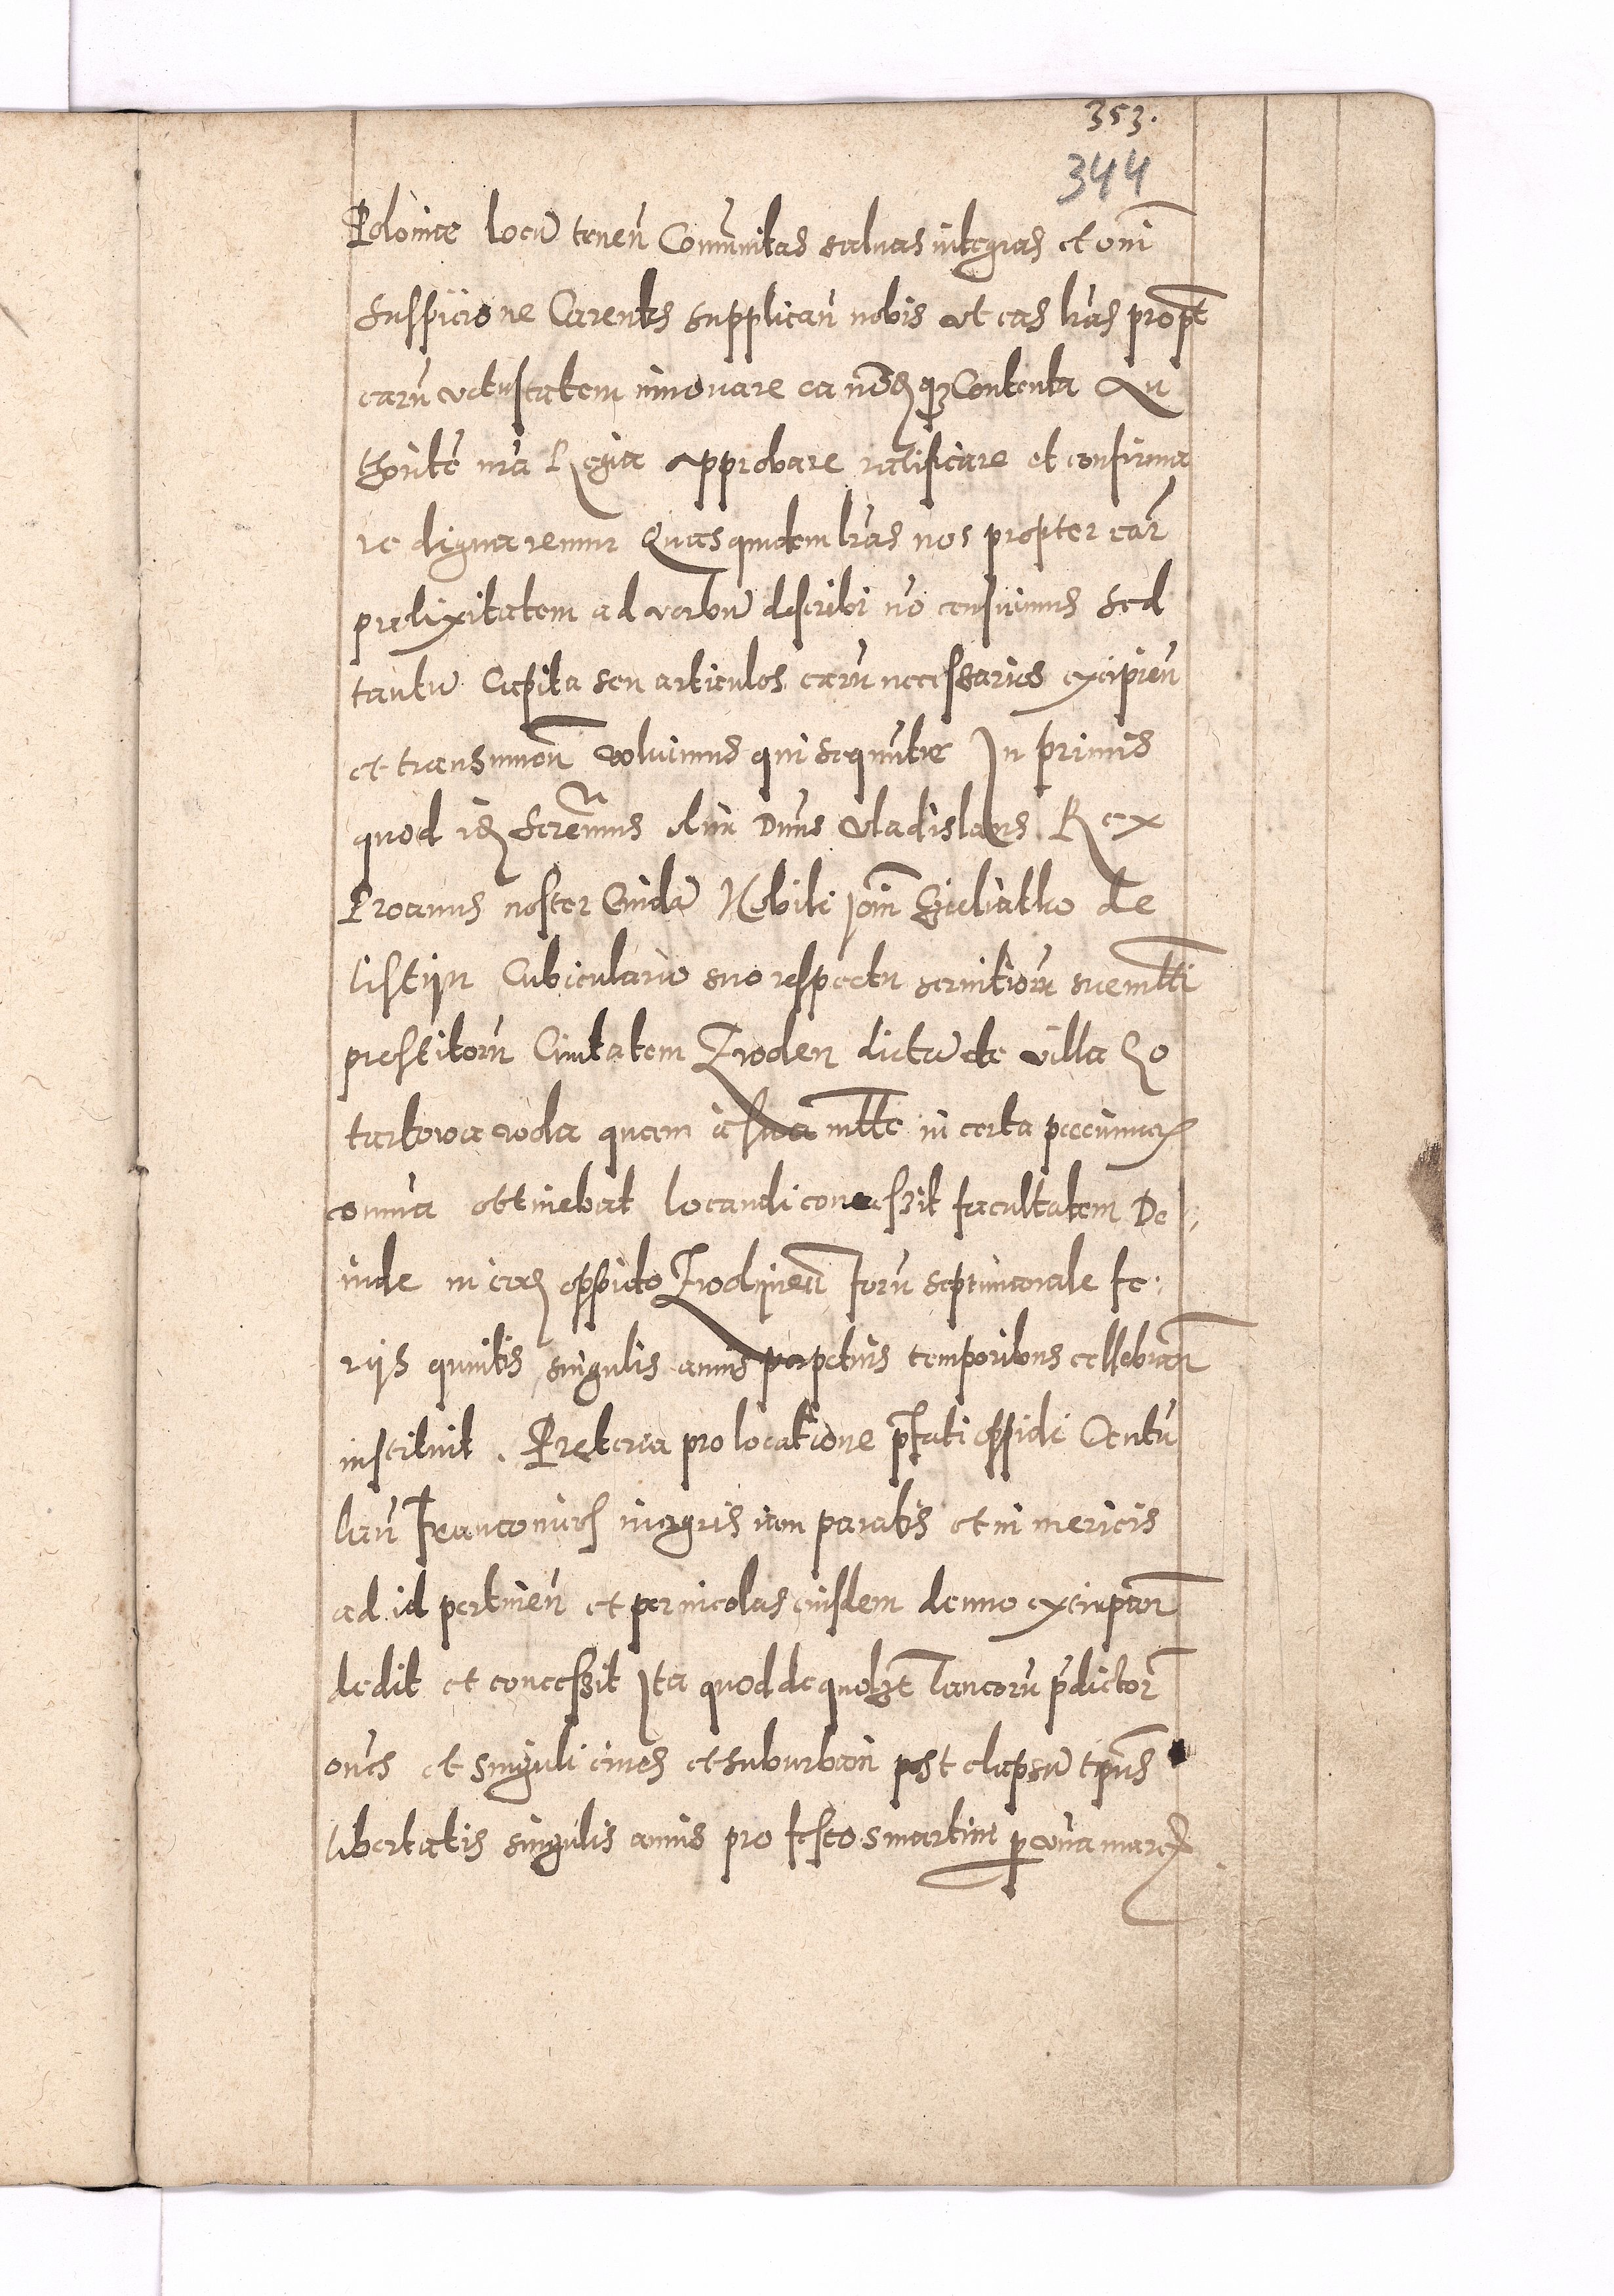 353.
344
Polonie locū tenen̄ Com̄unitas saluas integras et om̄i
suspicione Carentes supplican̄ nobis vt eas lr̄as propt̄
earū vetustatem innouare ea Contenta Au
thor̄ite nr̄a Regia Approbare ratificare et confirma
re dignaremur Quas quidem lr̄as nos propter ear̄
prolixitatem ad verbū describi nō censuimus sed
tantū Capita seu articulos earū necessarios excipien̄
et transumen̄ voluimus qui sequūtur In primis
quod idē Seren̄mus olim Dn̄us Vladislaus Rex
Proauus noster Cuidā Nobili Joān̄ de
Cubiculario suo respectu seruitiorū sue mtti
prestitorū Ciuitatem Zwolen dictā de villa Go
tartowa wola quam a sua mtte in certa pecuniaꝝ
som̄a obtinebat locandi concessit facultatem De
inde in eodē oppido Zwolinen̄ forū septimanale fe:
rijs quintis singulis annis perpetuis temporibus cellebran̄
instituit. Preterea pro locatione pr̄fati oppidi Centū
lan̄ Franconicos in agris iam paratis et in mericis
ad id pertinen̄ et per incolas eiusdem denuo extirpan̄
dedit et concessit Ita quod de quolibet laneorū pr̄dictor̄
om̄es et singuli ciues et suburban̄ post elapsū tp̄us
libertatis singulis annis pro festo S martini p vna marcā